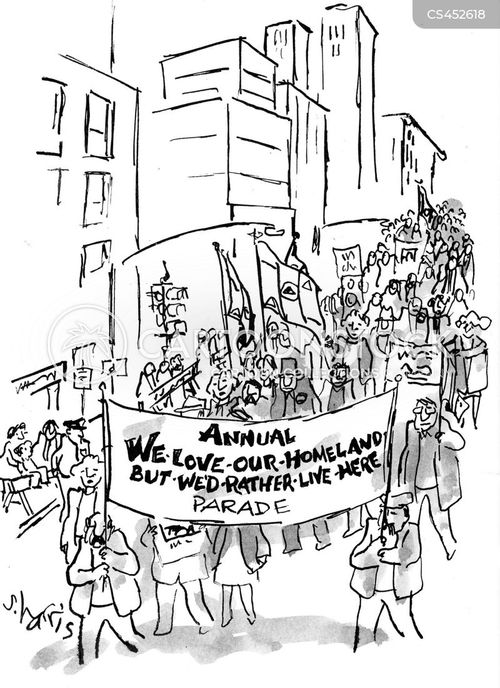 CS452618
ANNUAL
WE-LOVE-OUR-HOMELAND
BUT-WE'D-RATHER-LIVE-HERE
PARADE
S.harris